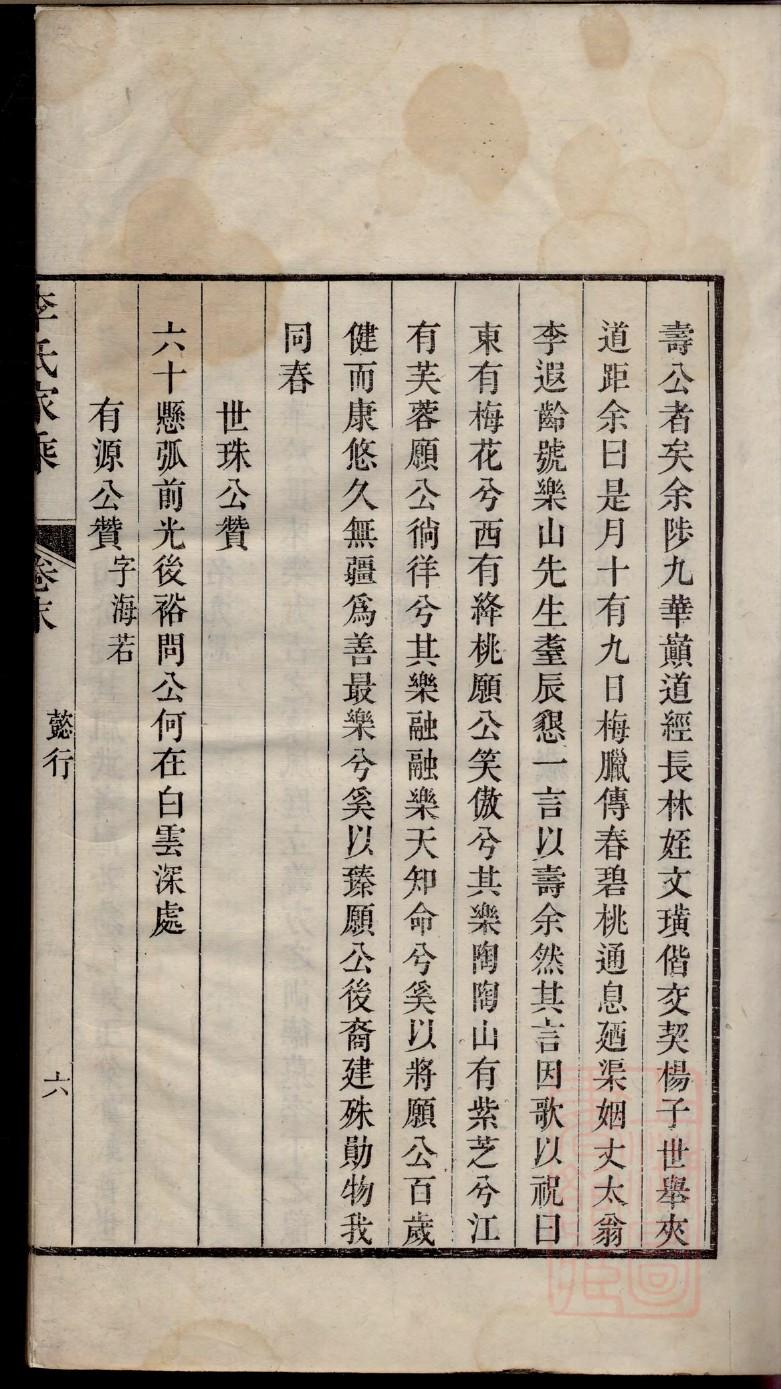 壽公者矣余陟九華巔道經長林姪文璜偕交契楊子世舉夾
道距余曰是月十有九日梅臘傳春碧桃通息廼渠姻丈太翁
李遐齡號樂山先生耋辰懇一言以壽余然其言因歌以祝曰
東有梅花兮西有絳桃願公笑傲兮其樂陶陶山有紫芝兮江
有芙蓉願公徜徉兮其樂融融樂天知命兮奚以將願公百歲
健而康悠久無疆爲善最樂兮奚以臻願公後裔建殊勛物我
同春
世珠公贊
六十懸弧前光後裕問公何在白雲深處
有源公贊 字海若
李氏家乘 卷末 懿行 六